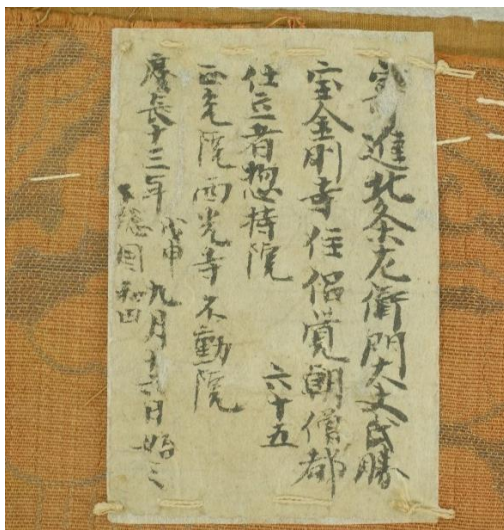 寄進北条左衛門大夫氏勝
宝金剛寺住侶覚朝僧都
六十五
仕立者惣持院
西光院西光寺不動院
慶長十三年戊申九月十六日始之
下総国和田